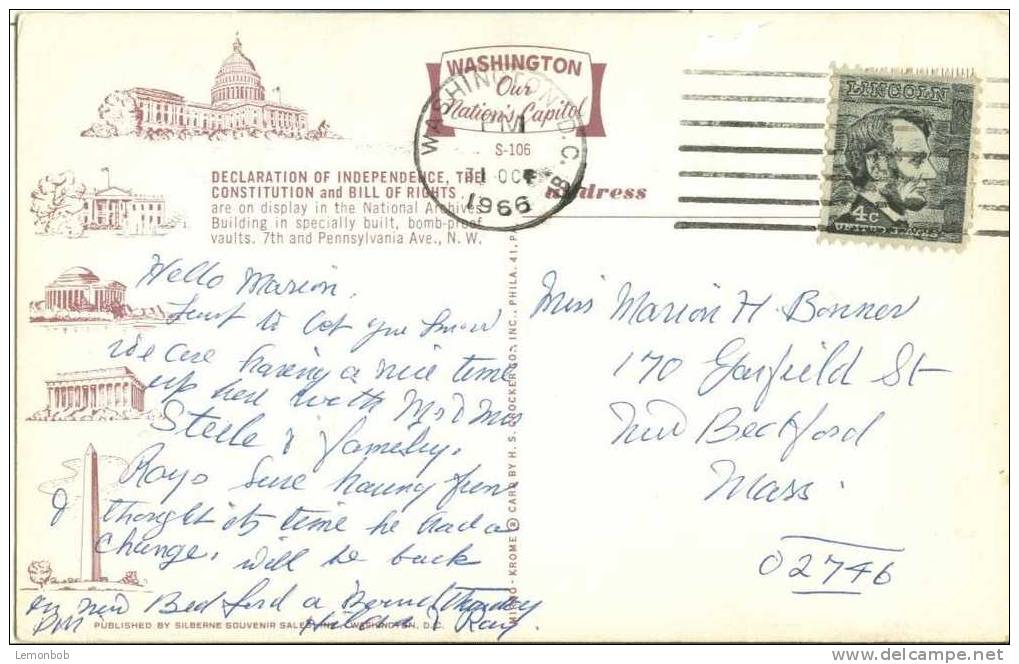 WASHINGTON
Our
Nation's Capitol
WASHINGTON, D.C.
PM
OCT
1966
S-106
LINCOLN
4c
UNITED STATES
DECLARATION OF INDEPENDENCE, THE
CONSTITUTION and BILL OF RIGHTS
are on display in the National Archives
Building in specially built, bomb-proof
vaults. 7th and Pennsylvania Ave., N. W.
address
Hello Marion,
Just to let you know
we are having a nice time
up here with Mr & Mrs
Steele & family.
Rays sure having fun
I thought its time he had a
change, will be back
in New Bedford Thursday
PM Ray.
Miss Marion H. Bonner
170 Garfield St
New Bedford
Mass.
02746
MIRRO-KROME ® CARD BY H. S. CROCKER CO., INC., PHILA. 41, PA.
PUBLISHED BY SILBERNE SOUVENIR SALES, INC., WASHINGTON, D.C.
Lemonbob
delcampe.net